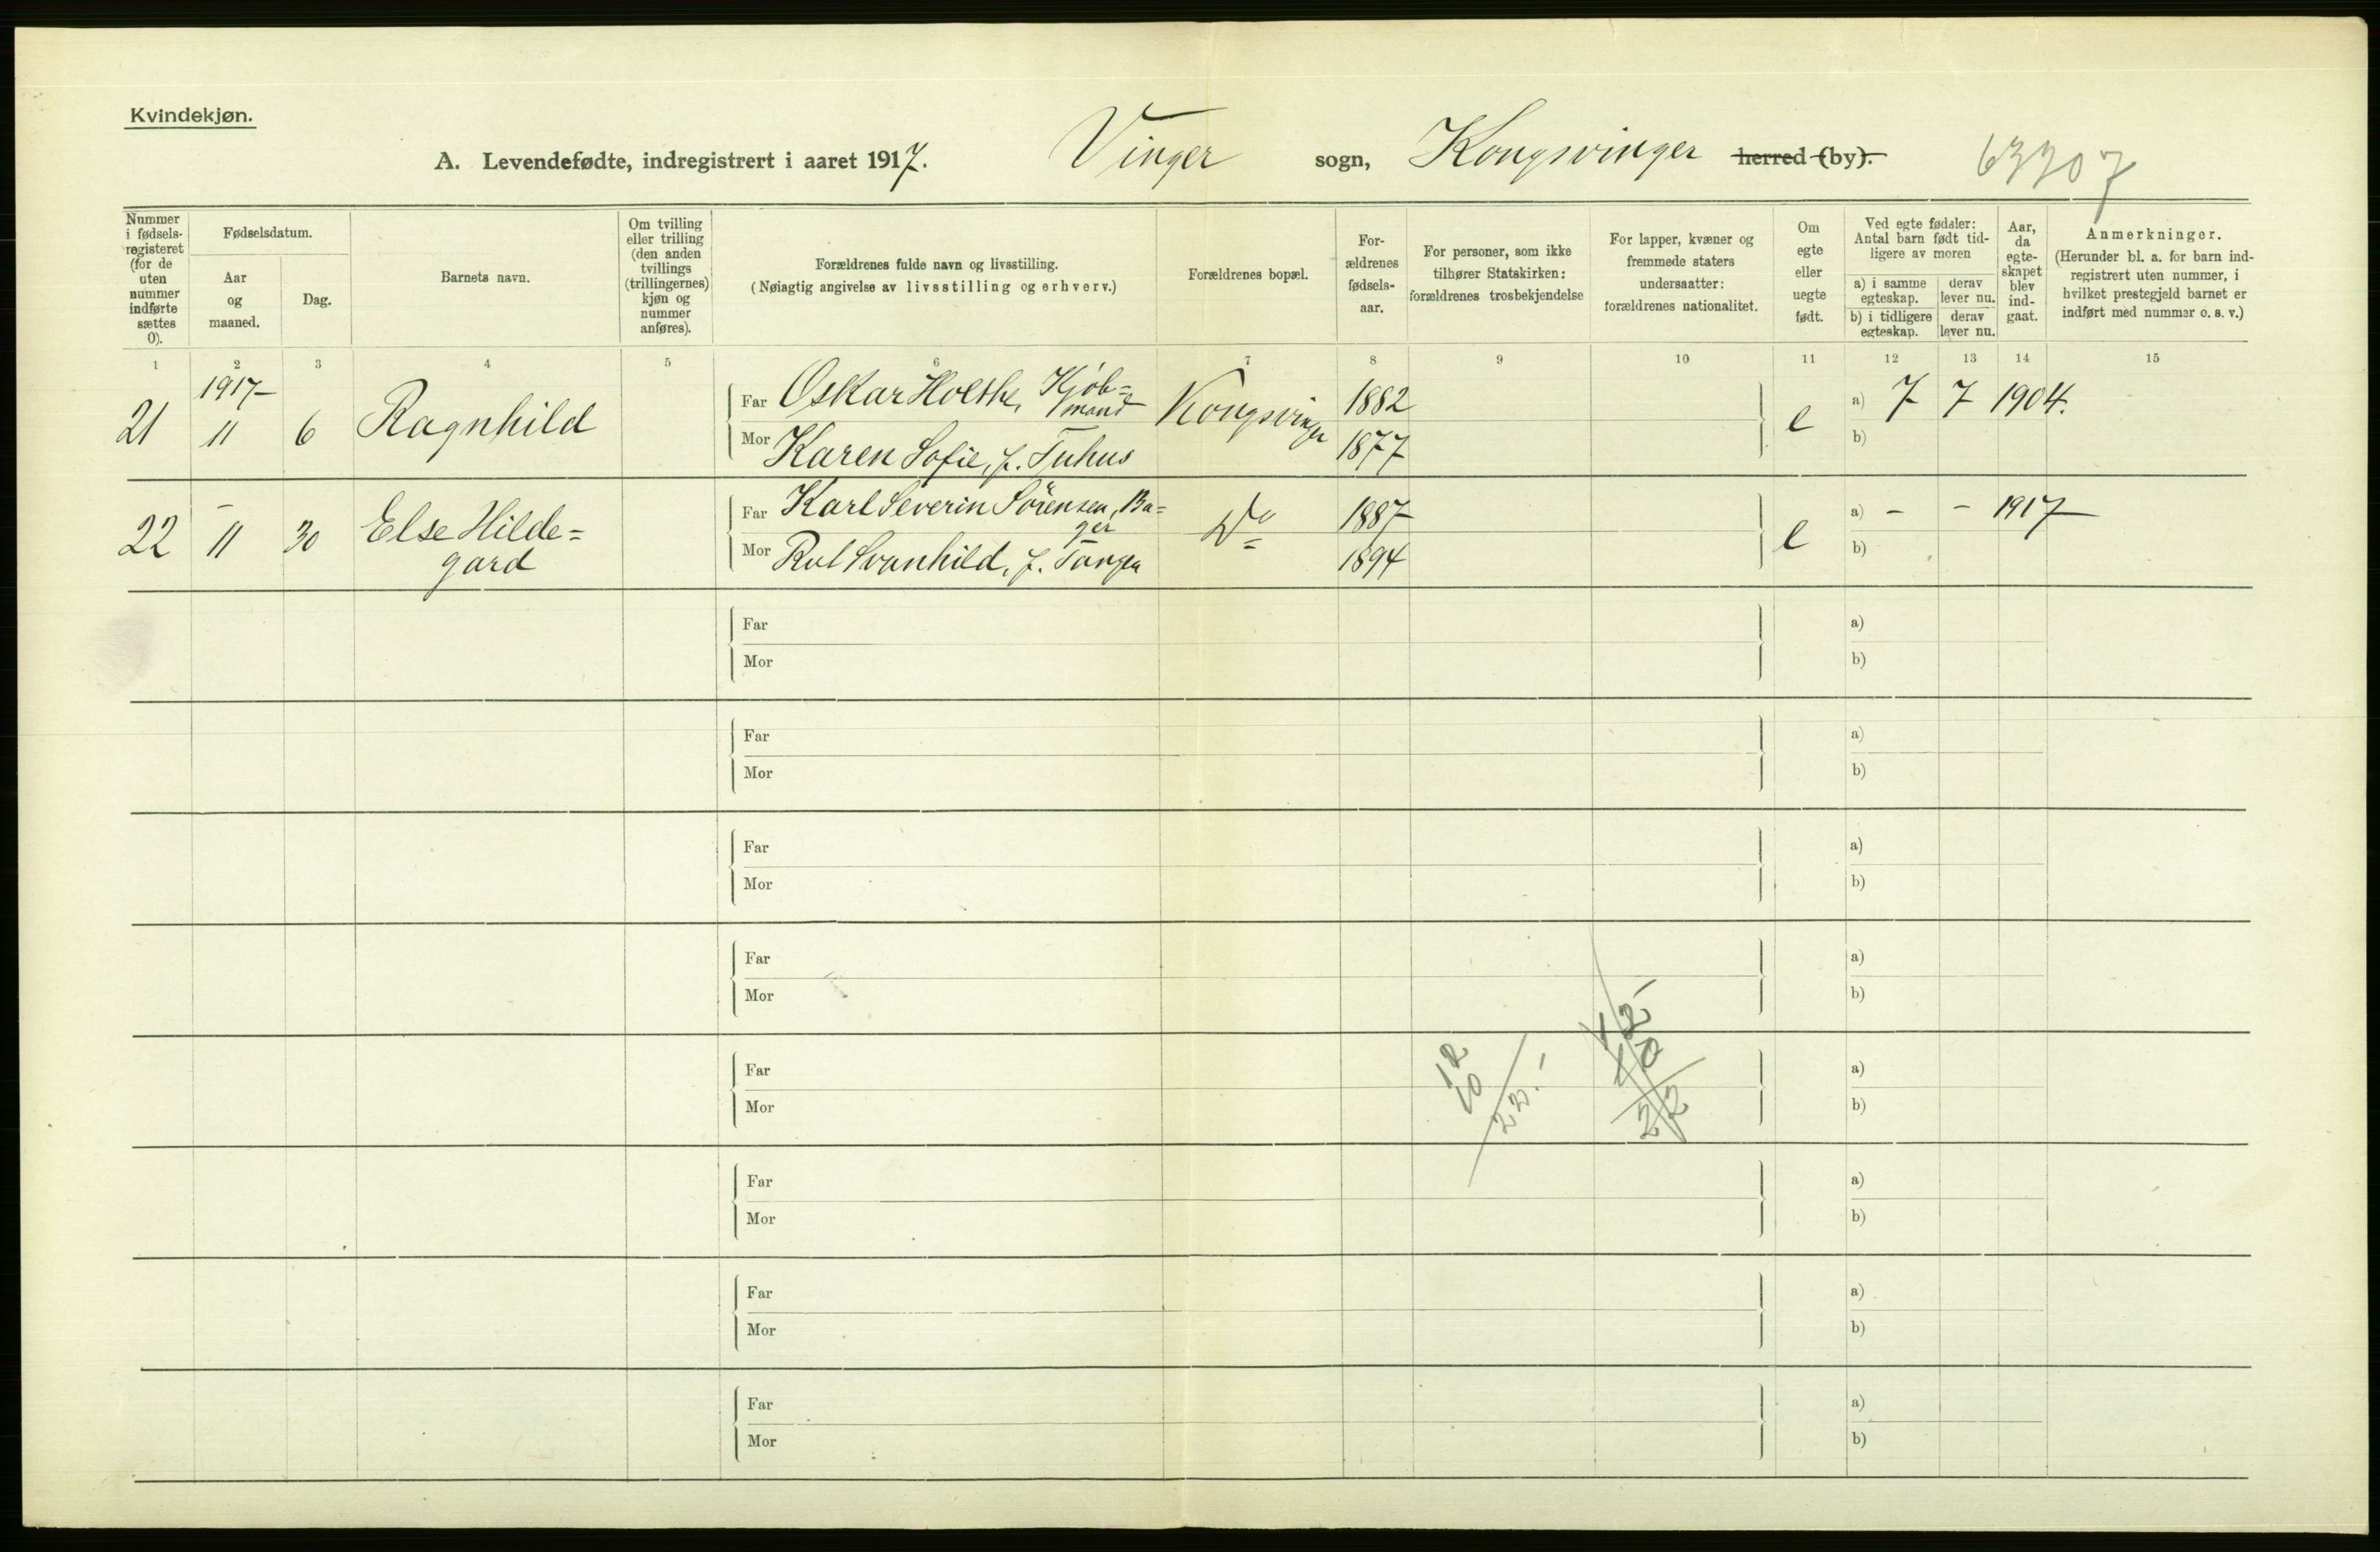 Kvindekjøn.
A. Levendefødte, indregistrert i aaret 1917. Vinger sogn, Kongsvinger herred (by). 63307
Nummer i fødsels-registeret (for de uten nummer indførte sættes 0).
Fødselsdatum.
Aar og maaned.
Dag.
Barnets navn.
Om tvilling eller trilling (den anden tvillings (trillingernes) kjøn og nummer anføres).
Forældrenes fulde navn og livsstilling.
(Nøiagtig angivelse av livsstilling og erhverv.)
Forældrenes bopæl.
For-ældrenes fødsels-aar.
For personer, som ikke tilhører Statskirken: forældrenes trosbekjendelse
For lapper, kvæner og fremmede staters undersaatter: forældrenes nationalitet.
Om egte eller uegte født.
Ved egte fødsler: Antal barn født tid-ligere av moren
a) i samme egteskap.
derav lever nu.
b) i tidligere egteskap.
derav lever nu.
Aar, da egte-skapet blev ind-gaat.
Anmerkninger.
(Herunder bl. a. for barn ind-registrert uten nummer, i hvilket prestegjeld barnet er indført med nummer o. s. v.)
1 2 3 4 5 6 7 8 9 10 11 12 13 14 15
1917
21 11 6 Ragnhild Far Oskar Holthe, Kjöb=mand Kongsvinger 1882 e a) 7 7 1904.
Mor Karen Sofie, f. Tuhus 1877 b)
22 11 30 Else Hilde= Far Karl Severin Sörensen, Ba=ger Do 1887 e a) - - 1917
gard Mor Svanhild, f. Tangen 1894 b)
Far a)
Mor b)
Far a)
Mor b)
Far a)
Mor b)
Far a)
Mor b)
Far a)
Mor b)
12 10 22.-
12- 10 22
Far a)
Mor b)
Far a)
Mor b)
Far a)
Mor b)